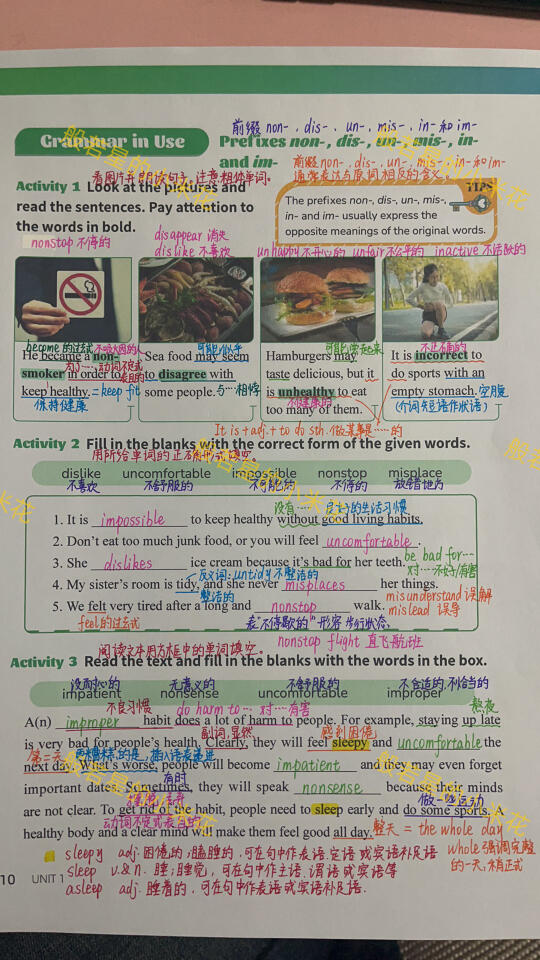 前缀 non-, dis-, un-, mis-, in- 和 im-
Grammar in Use
Prefixes non-, dis-, un-, mis-, in-
and im-
前缀 non-, dis-, un-, mis-, in- 和 im-
通常表达与原词相反的含义。
看图片并朗读句子,注意粗体单词。
Activity 1 Look at the pictures and
read the sentences. Pay attention to
the words in bold.
TIPS
The prefixes non-, dis-, un-, mis-,
in- and im- usually express the
opposite meanings of the original words.
nonstop 不停的
disappear 消失
dislike 不喜欢
unhappy 不开心的 unfair 不公平的 inactive 不活跃的
become 的过去式 不吸烟的人
He became a non-
smoker in order to
keep healthy. = keep fit
保持健康
可能 似乎
Sea food may seem
to disagree with
some people. 与……相悖
可能 尝起来
Hamburgers may
taste delicious, but it
is unhealthy to eat
不健康的
too many of them.
不正确的
It is incorrect to
do sports with an
empty stomach. 空腹
(介词短语作状语)
It is + adj. + to do sth. 做某事是……的
Activity 2 Fill in the blanks with the correct form of the given words.
用所给单词的正确形式填空。
dislike uncomfortable impossible nonstop misplace
不喜欢 不舒服的 不可能的 不停的 放错地方
没有…… 良好的生活习惯
1. It is impossible to keep healthy without good living habits.
2. Don't eat too much junk food, or you will feel uncomfortable.
be bad for…
3. She dislikes ice cream because it's bad for her teeth. 对…不好/有害
反义词: untidy 不整洁的
4. My sister's room is tidy, and she never misplaces her things.
整洁的
misunderstand 误解
mislead 误导
5. We felt very tired after a long and nonstop walk.
feel的过去式
表"不停歇的" 形容步行状态
nonstop flight 直飞航班
阅读文本用方框中的单词填空。
Activity 3 Read the text and fill in the blanks with the words in the box.
没耐心的 无意义的 不舒服的 不合适的,不恰当的
impatient nonsense uncomfortable improper
不良习惯 do harm to… 对……有害
熬夜
A(n) improper habit does a lot of harm to people. For example, staying up late
副词,显然 感到困倦
is very bad for people's health. Clearly, they will feel sleepy and uncomfortable the
第二天
next day. What's worse, people will become impatient and they may even forget
有时
important dates. Sometimes, they will speak nonsense because their minds
做一些运动
are not clear. To get rid of the habit, people need to sleep early and do some sports. A
healthy body and a clear mind will make them feel good all day.
整天 = the whole day
whole 强调完整
的一天,稍正式
sleepy adj. 困倦的;瞌睡的,可在句中作表语、定语或宾语补足语
sleep v.& n. 睡;睡觉,可在句中作主语、谓语或宾语等
asleep adj. 睡着的,可在句中作表语或宾语补足语.
10 UNIT 1